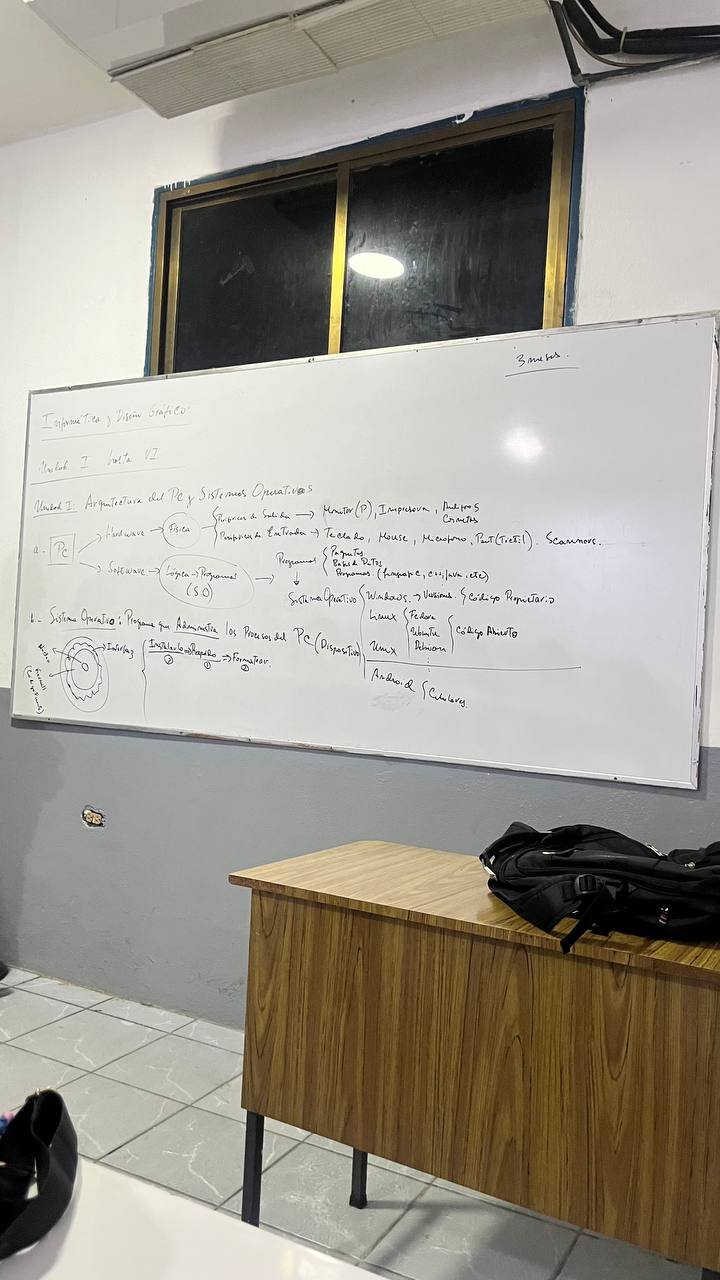 3 meses.
Informática y Diseño Gráfico:
Unidad I hasta VI
Unidad I: Arquitectura del Pc y Sistemas Operativos
a.- Pc
Hardware → Física
Perifericos de Salida → Monitor (P), Impresora, Audifonos
Cornetas
Perifericos de Entrada → Teclado, Mouse, Microfono, Scanners.
Software → Lógica → Programas
(S.O)
Programas
Paquetes
Base de Datos
Programas. (c++, Java, etc)
Sistema Operativo
Windows. → Versiones. Código Propietario
Linux
Fedora
Ubuntu
Debian
Código Abierto
Unix
Android Celulares.
b.- Sistema Operativo: Programa que Administra los Procesos del PC (Dispositivo
Interfaz
→ Formatear.
① ② ②